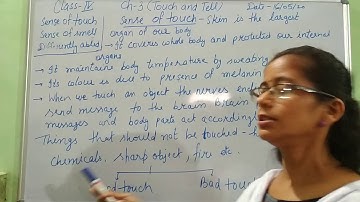 Class-IV Ch-3 (Touch and Tell) Date-6/05/20
Sense of touch Sense of touch - Skin is the largest
Sense of smell organ of our body
Differently abled → It covers whole body and protect our internal
organs
→ It maintains body temperature by sweating
→ Its colour is due to presence of melanin
→ When we touch an object the nerves
send message to the brain. Brain
messages and body parts act according
Things that should not be touched -
Chemicals, sharp object, fire etc.
touch Bad touch